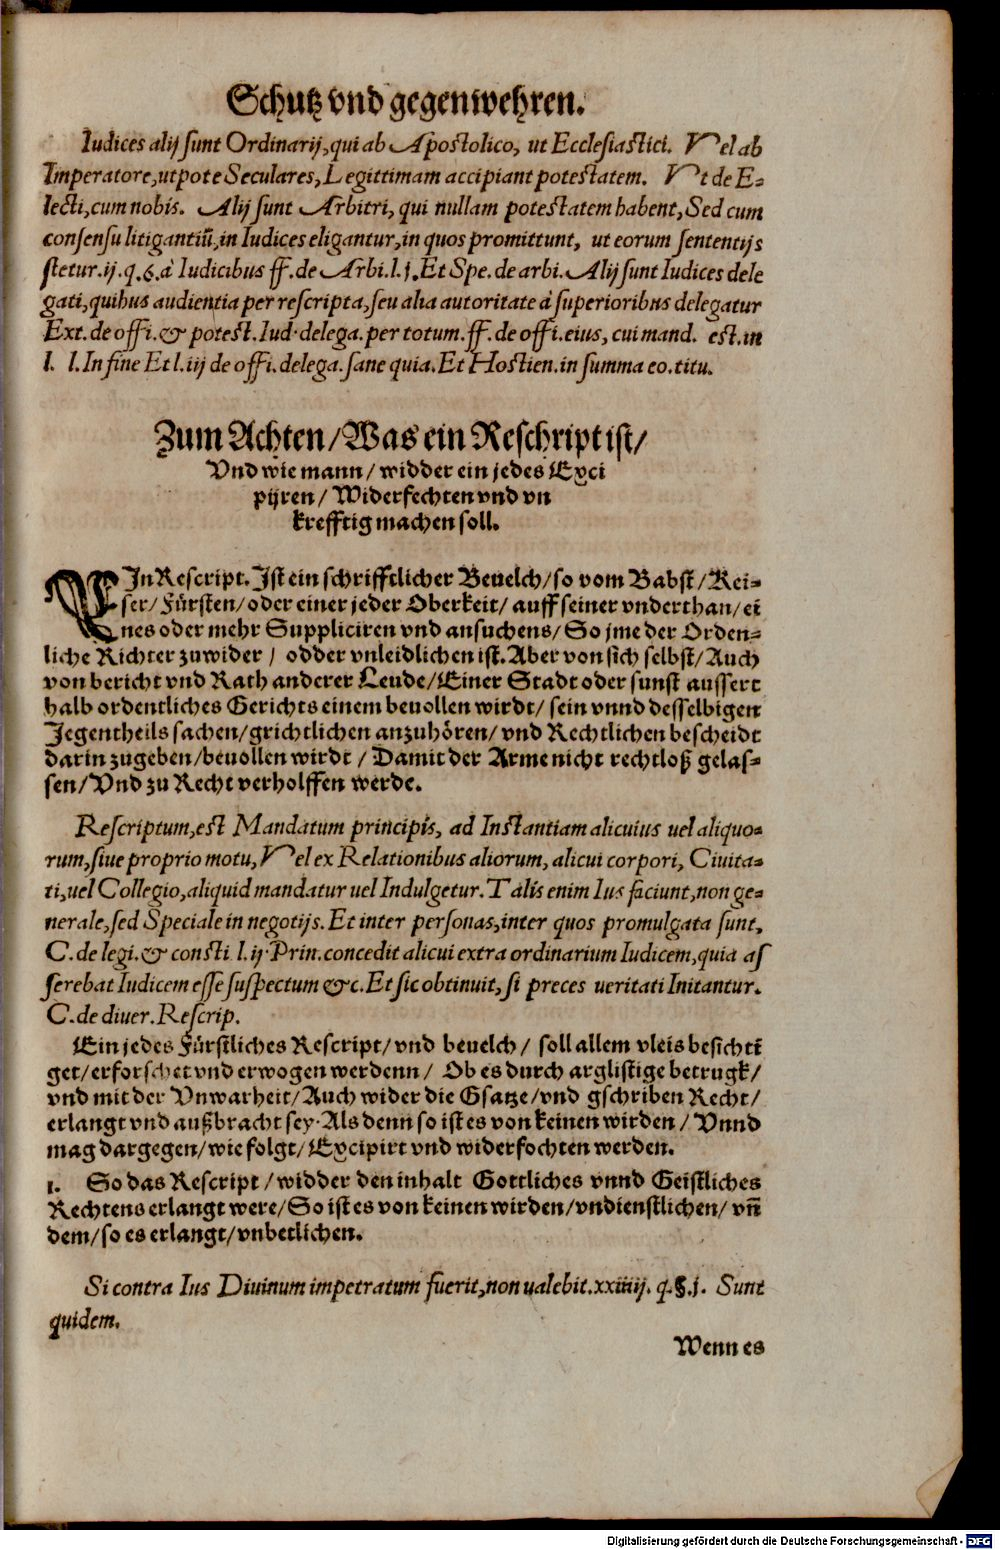 Schutz vnd gegenwehren.
Iudices alij sunt Ordinarij, qui ab Apostolico, ut Ecclesiastici. Vel ab
Imperatore, utpote Seculares, Legittimam accipiant potestatem. Vt de E-
lecti, cum nobis. Alij sunt Arbitri, qui nullam potestatem habent, Sed cum
consensu litigantiū, in Iudices eligantur, in quos promittunt, ut eorum sententijs
stetur. ij. q. 6. à Iudicibus ff. de Arbi. l. j. Et Spe. de arbi. Alij sunt Iudices dele
gati, quibus audientia per rescripta, seu alia autoritate à superioribus delegatur
Ext. de offi. & potest. Iud. delega. per totum. ff. de offi. eius, cui mand. est. in
l. l. In fine Et l. iij de offi. delega. sane quia. Et Hostien. in summa eo. titu.
Zum Achten/ Was ein Reschript ist/
Vnd wie mann/ widder ein jedes Exci
pijren/ Widerfechten vnd vn
krefftig machen soll.
EIn Rescript. Ist ein schrifftlicher Beuelch/ so vom Babst/ Kei-
ser/ Fürsten/ oder einer jeder Oberkeit/ auff seiner vnderthan/ ei
nes oder mehr Suppliciren vnd ansuchens/ So jme der Orden-
liche Richter zuwider/ odder vnleidlichen ist. Aber von sich selbst/ Auch
von bericht vnd Rath anderer Leude/ Einer Stadt oder sunst aussert
halb ordentliches Gerichts einem beuollen wirdt/ sein vnnd desselbigen
Jegentheils sachen/ grichtlichen anzuhören/ vnd Rechtlichen bescheidt
darin zugeben/ beuollen wirdt/ Damit der Arme nicht rechtloß gelas-
sen/ Vnd zu Recht verholffen werde.
Rescriptum, est Mandatum principis, ad Instantiam alicuius uel aliquo-
rum, siue proprio motu, Vel ex Relationibus aliorum, alicui corpori, Ciuita-
ti, uel Collegio, aliquid mandatur uel Indulgetur. Talis enim Ius faciunt, non ge-
nerale, sed Speciale in negotijs. Et inter personas, inter quos promulgata sunt,
C. de legi. & consti l. ij. Prin. concedit alicui extra ordinarium Iudicem, quia as
serebat Iudicem esse suspectum &c. Et sic obtinuit, si preces ueritati Initantur.
C. de diuer. Rescrip.
Ein jedes Fürstliches Rescript/ vnd beuelch/ soll allem vleis besichti
get/ erforschet vnd erwogen werdenn/ Ob es durch arglistige betrugk/
vnd mit der Vnwarheit/ Auch wider die Gsatze/ vnd gschriben Recht/
erlangt vnd außbracht sey. Als denn so ist es von keinen wirden/ Vnnd
mag dargegen/ wie folgt/ Excipirt vnd widerfochten werden.
1. So das Rescript/ widder den inhalt Gottliches vnnd Geistliches
Rechtens erlangt were/ So ist es von keinen wirden/ vndienstlichen/ vñ
dem/ so es erlangt/ vnbetlichen.
Si contra Ius Diuinum impetratum fuerit, non ualebit. xxiiij. q. §. j. Sunt
quidem.
Wenn es
Digitalisierung gefördert durch die Deutsche Forschungsgemeinschaft - DFG